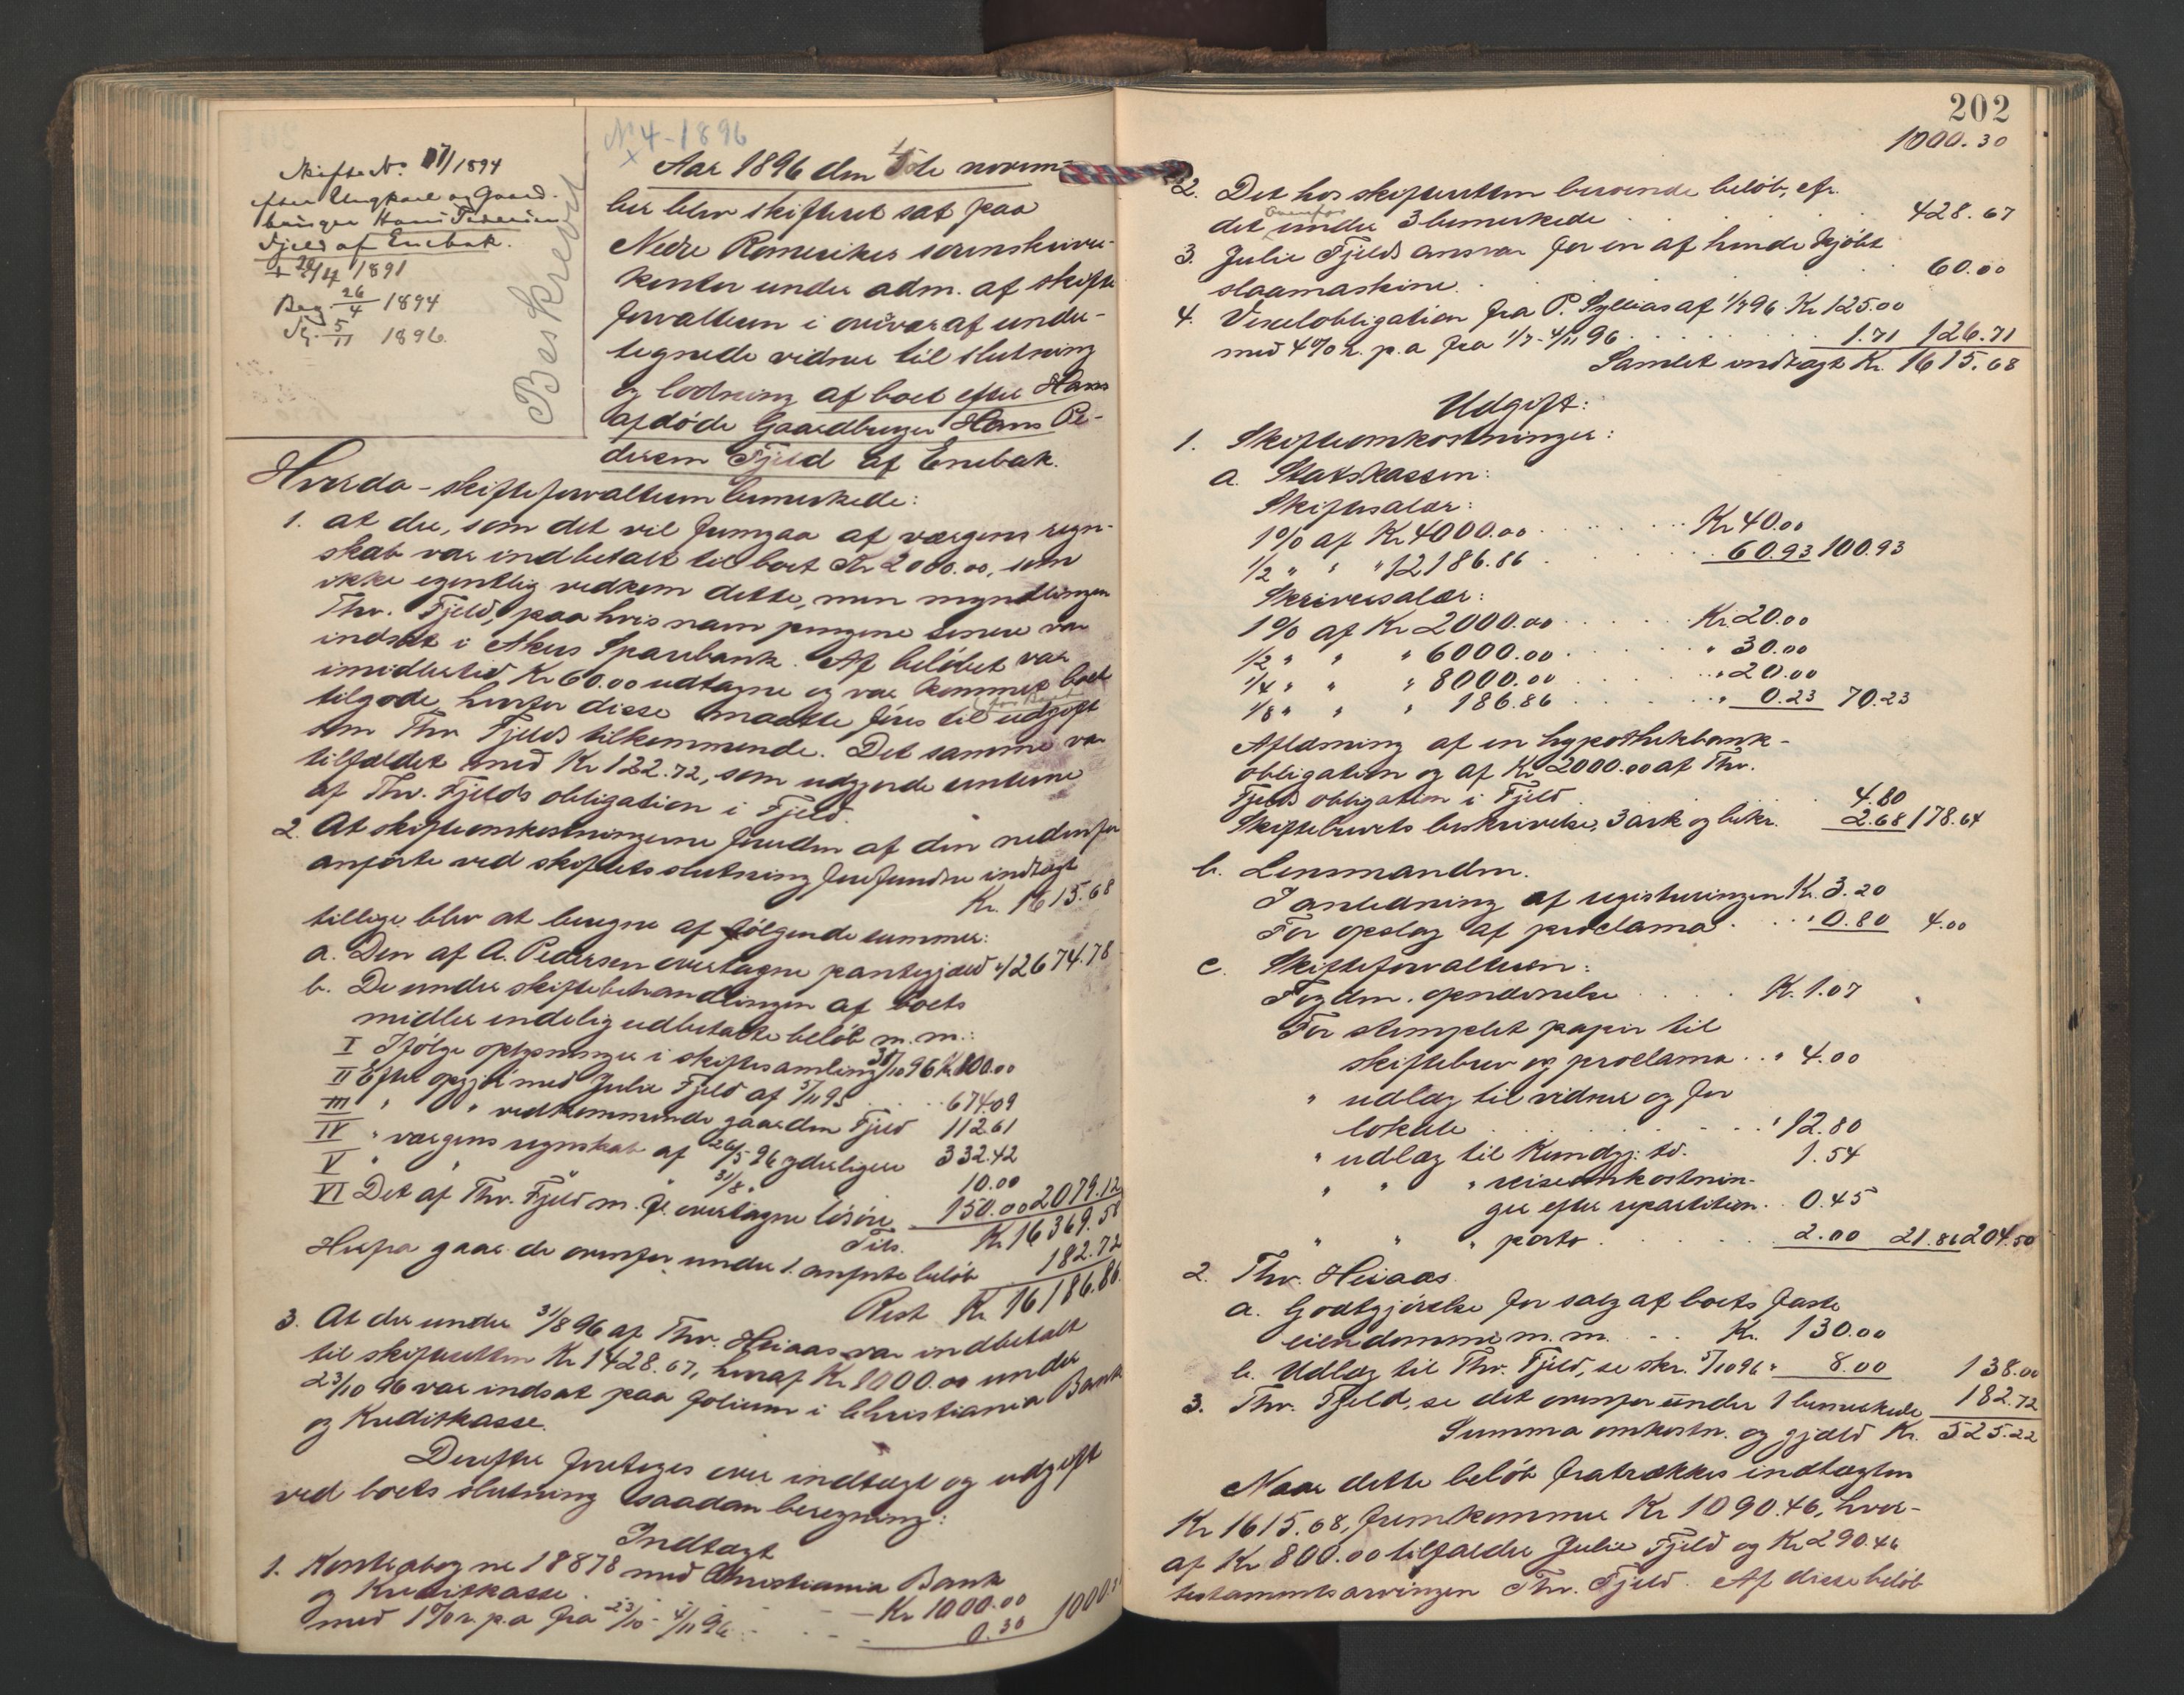 Skifte No. 17/1894
efter Ungkarl og Gaard-
bruger Hans Pedersen
Fjeld af Enebak.
+ 20/4 1891
Beg. 26/4 1894
Sl. 5/11 1896.
Beskrevet
No 4-1896
x
Aar 1896 den 5te novem-
ber blev skifteret sat paa
Nedre Romerikes sorenskriver-
kontor under adm. af skifte-
forvalteren i overvær af under-
tegnede vidner til slutning
og lodning af boet efter Hans
afdøde Gaardbruger Hans Pe-
dersen Fjeld af Enebak.
Hvorda - skifteforvalteren bemerkede:
1. at der, som det vil fremgaa af værgens regn-
skab var indbetalt til boet Kr 2000.00, som
ikke egentlig vedkom dette, men myndlingen
Thv. Fjeld, paa hvis navn pengene senere var
indsat i Akers Sparebank. Af beløbet var
imidlertid Kr 60.00 udtagne og var kommet boet
tilgode, hvorfor disse maatte føres til udgift
som Thv Fjelds tilkommende. Det samme var
tilfældet med Kr 122.72, som udgjorde renterne
af Thv. Fjelds obligation i Fjeld.
2. At skifteomkostningerne foruden af den nedenfor
anførte ved skiftets slutning forefundne indtægt
Kr. 1615.68
tillige blev at beregne af følgende summer:
a. Den af A. Pedersen overtagne pantegjæld " 12674.78
b. De under skiftebehandlingen af boets
midler endelig udbetalte beløb m.m.:
I Ifølge oplysninger i skiftesamling 31/10 96 Kr 800.00
II Efter opgjør med Julie Fjeld af 5/11 95 . . 674.09
III " " vedkommende gaarden Fjeld 112.61
IV " værgens regnskab af 26/5 96 yderligere 332.42
V " " " 31/8 " 10.00
VI Det af Thv. Fjeld m. fl. overtagne løsøre 150.00 2079.12
Tils. Kr 16369.58
Herfra gaar de ovenfor under 1. anførte beløb 182.72
Rest Kr. 16186.86.
3. At der under 31/8 96 af Thv. Heiaas var indbetalt
til skifteretten Kr 1428.67, hvoraf Kr 1000.00 under
23/10 96 var indsat paa folium i Christiania Bank
og Kreditkasse.
Derefter foretoges over indtægt og udgift
ved boets slutning saadan beregning:
Indtægt
1. Kontrabog no 18878 med Christiania Bank
og Kreditkasse . . . Kr 1000.00
med 1% r. p.a fra 23/10 - 4/11 96 . . . 0.30 1000.30
202
1000.30
2. Det hos skifteretten beroende beløb, cfr.
det ovenfor under 3 bemerkede . . . 428.67
3. Julie Fjelds ansvar for en af hende kjøbt
slaamaskine . . . 60.00
4. Vexelobligation fra P. Sylliaas af 1/7 96 Kr 125.00
med 4% r. p.a fra 1/7 - 4/11 96 . . . 1.71 126.71
Samlet indtægt Kr. 1615.68
Udgift:
1. Skifteomkostninger:
a. Statskassen:
Skiftesalær:
1% af Kr 4000.00 . . . Kr 40.00
1/2 " " " 12186.86 . . . 60.93 100.93
Skriversalær:
1% af Kr 2000.00 . . . Kr. 20.00
1/2 " " " 6000.00 . . . " 30.00
1/4 " " " 8000.00 . . . " 20.00
1/8 " " " 186.86 . . . " 0.23 70.23
Aflæsning af en hypothekbank-
obligation og af Kr 2000.00 af Thv.
Fjelds obligation i Fjeld . . . 4.80
Skiftebrevets beskrivelse, 3 ark og bekr. 2.68 178.64
b. Lensmanden.
I anledning af registreringen Kr. 3.20
For opslag af proclama . . . " 0.80 4.00
c. Skifteforvalteren:
Fogdens opnævnelse . . . Kr. 1.07
For stemplet papir til
skiftebrev og proclama . . " 4.00
" udlæg til vidner og for
lokale . . . " 12.80
" udlæg til Kundgj. td. 1.54
" " " reiseomkostnin-
ger efter repartition . . 0.45
" " " porto . . . 2.00 21.86 204.50
2. Thv. Heiaas.
a. Godtgjørelse for salg af boets faste
eiendomme m.m. . . Kr. 130.00
b. Udlæg til Thv. Fjeld, se skr. 5/10 96 " 8.00 138.00
3. Thv. Fjeld, se det ovenfor under 1 bemerkede 182.72
Summa omkostn. og gjæld Kr. 525.22
Naar dette beløb fratrækkes indtægten
Kr 1615.68, fremkommer Kr 1090.46, hvor-
af Kr 800.00 tilfalder Julie Fjeld og Kr 290.46
testamentsarvingen Thv. Fjeld. Af disse beløb